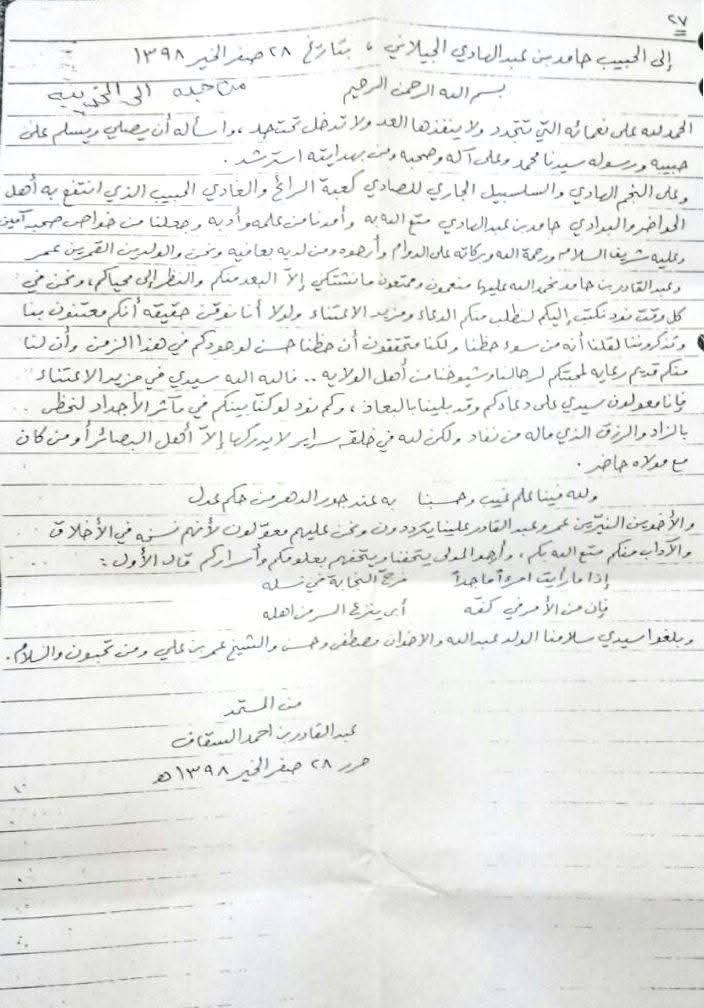 ٢٧
إلى الحبيب حامد بن عبد الهادي الجيلاني ، بتاريخ ٢٨ صفر الخير ١٣٩٨
بسم الله الرحمن الرحيم من جده الى الخريبه
الحمد لله على نعمائه التي تتجدد ولا ينفذها العد ولا تدخل تحت حد ، وأسأله أن يصلي ويسلم على
حبيبه ورسوله سيدنا محمد وعلى آله وصحبه ومن بهدايته استرشد .
وعلى النجم الهادي والسلسبيل الجاري للصادي كعبة الرائح والغادي الحبيب الذي انتفع به أهل
الحواضر والبوادي حامد بن عبد الهادي متع الله به وأمدنا من علمه وأدبه وجعلنا من خواص صحبه آمين
وعليه شريف السلام ورحمة الله وبركاته على الدوام وأرجوه ومن لديه بعافيه ونحن والولدين القمرين عمر
وعبد القادر بن حامد بحمد الله عليها منعمون وممتعون ما نشتكي إلاّ البعد منكم والنظر إلى محياكم ، ونحن في
كل وقت نود نكتب إليكم لنطلب منكم الدعاء ومزيد الاعتناء ولولا أنا نوقن حقيقه أنكم معتنون بنا
وتذكروننا لقلنا أنه من سوء حظنا ولكنا متحققون أن حظنا حسن لوجودكم في هذا الزمن وأن لنا
منكم قديم رعايه لمحبتكم لرجالنا وشيوخنا من أهل الولايه .. فالله الله سيدي في مزيد الاعتناء
فإنا معولون سيدي على دعاءكم وقد بلينا بالبعاد ، وكم نود لو كنا بينكم في مآثر الأجداد لنحظى
بالزاد والرزق الذي ماله من نفاد ولكن لله في خلقه سراير لا يدركها إلاّ أهل البصائر أو من كان
مع مولاه حاضر .
ولله فينا علم غيب وحسبنا به عند جور الدهر من حكم عدل
والأخوين النيّرين عمر وعبد القادر علينا يترددون ونحن عليهم معوّلون لأنهم نسخه في الأخلاق
والآداب منكم متع الله بكم ، وأرجو المولى يتحفنا ويتحفهم بعلومكم وأسراركم قال الأول :
إذا ما رأيت امرءاً ماجداً فرجّ النجابة في نسله
فإن من الأمر في كفه أبى ينزع السر من أهله
وبلغوا سيدي سلامنا الولد عبد الله والاخوان مصطفى وحسن والشيخ عمر بن علي ومن تحبون والسلام .
من المستمد
عبد القادر بن احمد السقاف
حرر ٢٨ صفر الخير ١٣٩٨ هـ